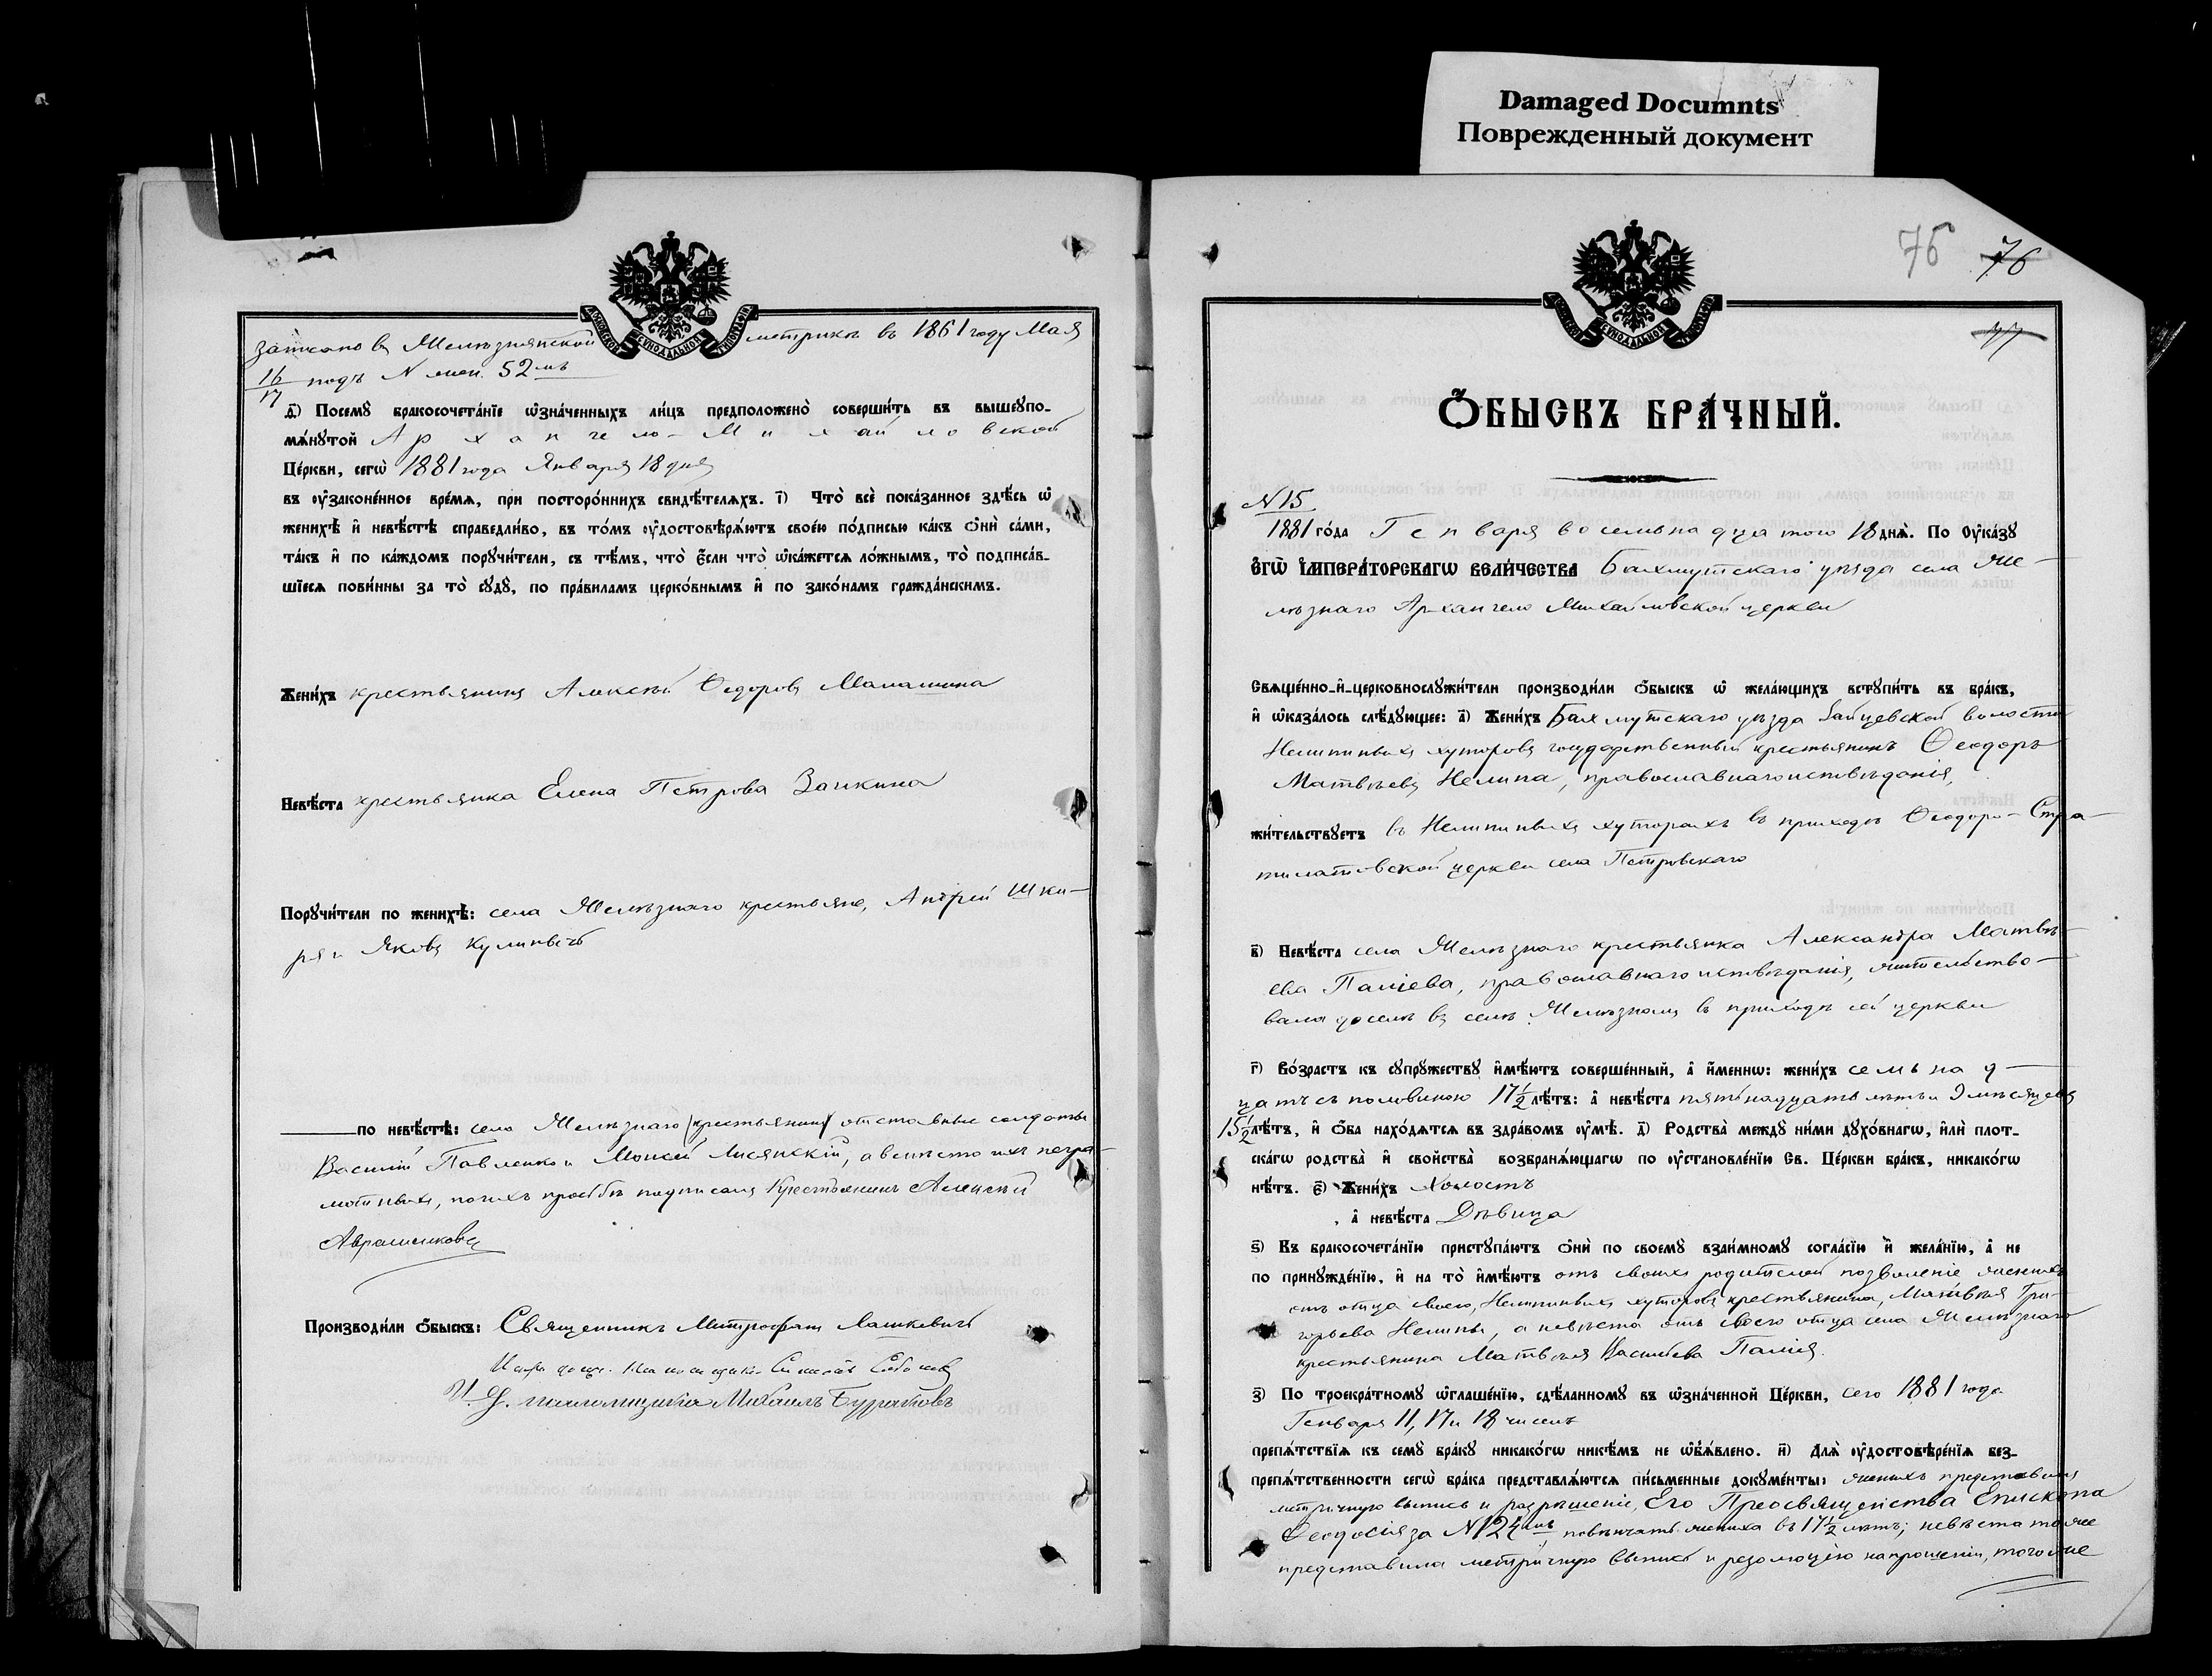 Damaged Documnts
Поврежденный документ
записано въ Желѣзнянской метрикѣ въ 1861 году Мая
16/17 подъ N жен. 52мъ
д҃) Посемꙋ бракосочета́нїе ѡ҆зна́ченныхъ ли́цъ предположено̀ соверши́ть въ вышеꙋпо-
мѧ́нꙋтой Архангело-Михайловской
Це́ркви, сегѡ̀ 1881 года Января 18 дня
въ ᲂу҆законе́нное вре́мѧ, при посторо́ннихъ свидѣ́телѧхъ. і҃) Что̀ всѐ пока́занное здѣ́сь ѡ҆
женихѣ̀ и҆ невѣ́стѣ справедли́во, въ то́мъ ᲂу҆достовѣрѧ́ютъ свое́ю по́дписью ка́къ ѻ҆нѝ са́ми,
та́къ и҆ по ка́ждомъ порꙋчи́тели, съ тѣ́мъ, что̀ є҆́сли что̀ ѡ҆ка́жетсѧ ло́жнымъ, то̀ подписа́в-
шїесѧ пови́нны за то̀ сꙋдꙋ̀, по пра́виламъ церко́внымъ и҆ по зако́намъ гражда́нскимъ.
Жени́хъ крестьянинъ Алексѣй Ѳедоровъ Малашина
Невѣ́ста крестьянка Елена Петрова Заикина
Порꙋчи́тели по женихѣ̀: села Желѣзнаго крестьяне, Андрей Шки-
ря и Яковъ Кулиничъ
по невѣ́стѣ: села Желѣзнаго (крестьянин) отставные солдаты
Василій Павленко и Моисей Лисянскій, а вмѣсто ихъ негра-
мотныхъ, по ихъ просьбѣ подписался Крестьянинъ Алексѣй
Авраменковъ
Производи́ли ѻ҆́быскъ: Священникъ Митрофанъ Лашкевичъ
И. д. псаломщика Михаилъ Бураковъ
75 76
77
Ѻ҆́быскъ бра́чный.
N 15
1881 го́да Генваря восемьнадцатого 18 днѧ̀. По ᲂу҆ка́зꙋ
є҆гѡ̀ і҆мпера́торскагѡ вели́чества Бахмутскаго уѣзда села Же-
лѣзнаго Архангело Михайловской церкви
Свѧще́нно-и҆-церковнослꙋжи́тели производи́ли ѻ҆́быскъ ѡ҆ жела́ющихъ встꙋпи́ть въ бра́къ,
и҆ ѡ҆каза́лось слѣ́дꙋющее: а҃) Жени́хъ Бахмутскаго уѣзда Зайцевской волости
Нелиповыхъ хуторовъ государственный крестьянинъ Ѳеодоръ
Матвѣевъ Нелипа, православнаго исповѣданія,
жи́тельствꙋетъ въ Нелиповыхъ хуторахъ въ приходѣ Ѳеодоро-Стра-
тилатовской церкви села Петровскаго
в҃) Невѣ́ста села Желѣзнаго крестьянка Александра Матвѣ-
ева Паліева, православнаго исповѣданія, жительство-
вала доселѣ въ селѣ Желѣзномъ въ приходѣ сей церкви
г҃) Во́зрастъ къ сꙋпрꙋ́жествꙋ и҆мѣ́ютъ соверше́нный, а҆ и҆́меннѡ: жени́хъ семьнад-
цать съ половиною 17½ лѣ́тъ: а҆ невѣ́ста пятьнадцать лѣтъ и 9 мѣсяцевъ
15½ лѣ́тъ, и҆ ѻ҆́ба нахо́дѧтсѧ въ здра́вомъ ᲂу҆мѣ̀. д҃) Родства̀ междꙋ ни́ми дꙋхо́внагѡ, и҆лѝ плот-
ска́гѡ родства̀ и҆ сво́йства возбранѧ́ющагѡ по ᲂу҆становле́нїю Св. Це́ркви бра́къ, никако́гѡ
нѣ́тъ. є҃) Жени́хъ Холостъ
, а҆ невѣ́ста Дѣвица
ѕ҃) Къ бракосочета́нїю пристꙋпа́ютъ ѻ҆нѝ по своемꙋ̀ взаи́мномꙋ согла́сїю и҆ жела́нїю, а҆ не
по принꙋжде́нїю, и҆ на то̀ и҆мѣ́ютъ отъ своихъ родителей позволеніе женихъ
отъ отца своего, Нелиповыхъ хуторовъ крестьянина, Матвѣя Гри-
горьева Нелипы, а невѣста отъ своего отца села Желѣзнаго
крестьянина Матвѣя Васильева Палія.
з҃) По троекра́тномꙋ ѡ҆глаше́нїю, сдѣ́ланномꙋ въ ѡ҆зна́ченной Це́ркви, сего 1881 года
Генваря 11, 17 и 18 чиселъ
препѧ́тствїѧ къ семꙋ̀ бра́кꙋ никако́гѡ никѣ́мъ не ѡ҆б̾ѧ́влено. и҃) Длѧ̀ ᲂу҆достовѣре́нїѧ без-
препѧ́тственности сегѡ̀ бра́ка представлѧ́ютсѧ пи́сьменные докꙋме́нты: женихъ представилъ
метрічную выпись и разрѣшеніе, Его Преосвященства Епископа
Ѳеодосія за N 124мъ повѣнчать жениха въ 17½ лѣтъ; невѣста тоже
представила метрічную выпись и резолюцію на прошеніи, того же